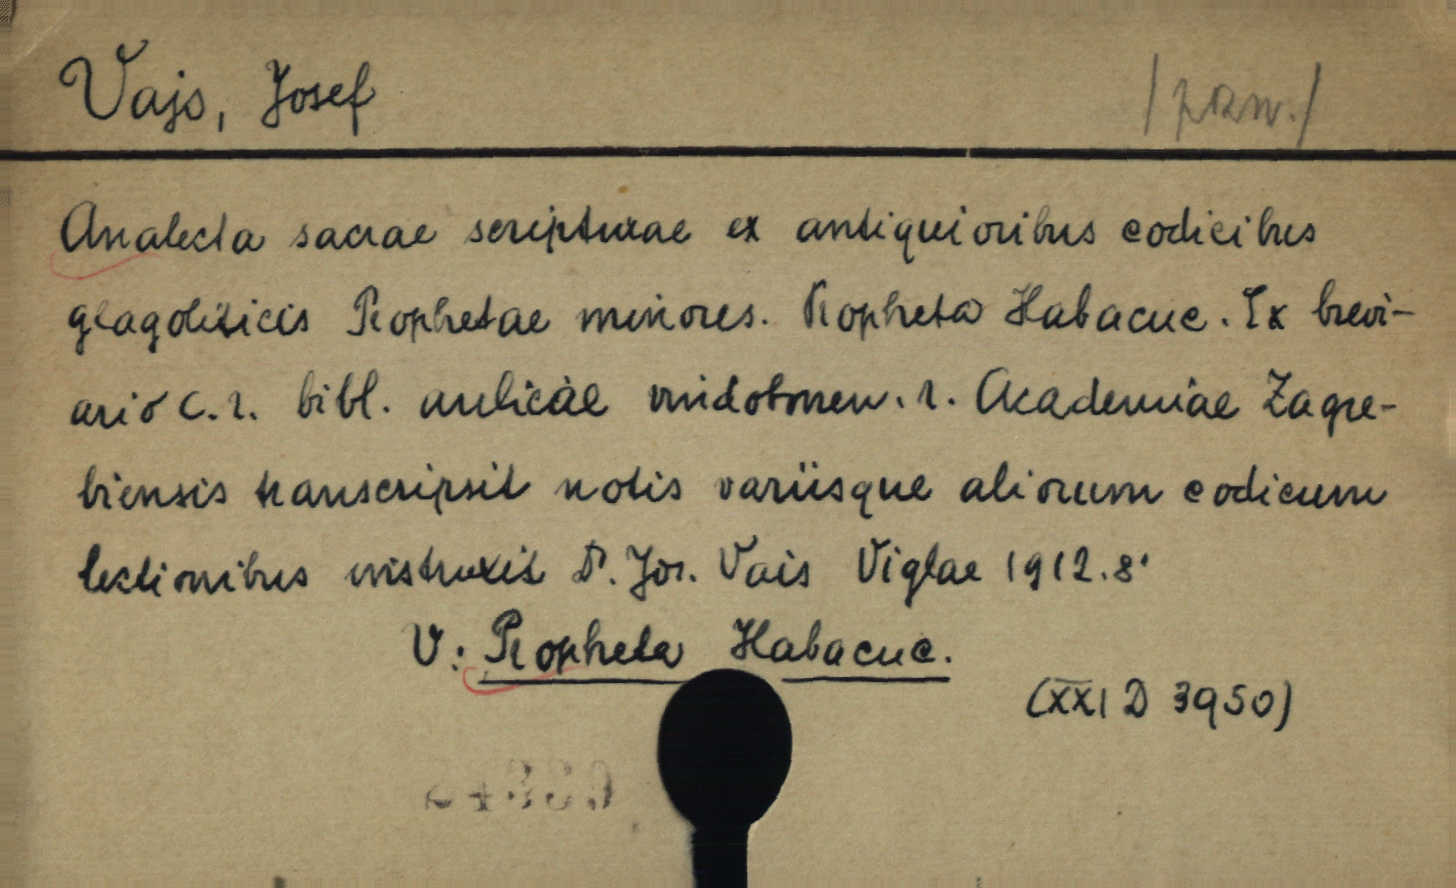 Vajs, Josef
Analecta sacrae scripturae ex antiquioribus codicibus
glagoliticis Prophetae minores. Propheta Habacuc. Ex brevi-
ario c. r. bibl. aulicae vindobonen. r. Academiae Zagre-
biensis transcripsit notis variisque aliorum codicum
lectionibus instruxit Dr. Jos. Vais Viglae 1912. 8°
V: Propheta Habacuc.
(XXI D 3950)